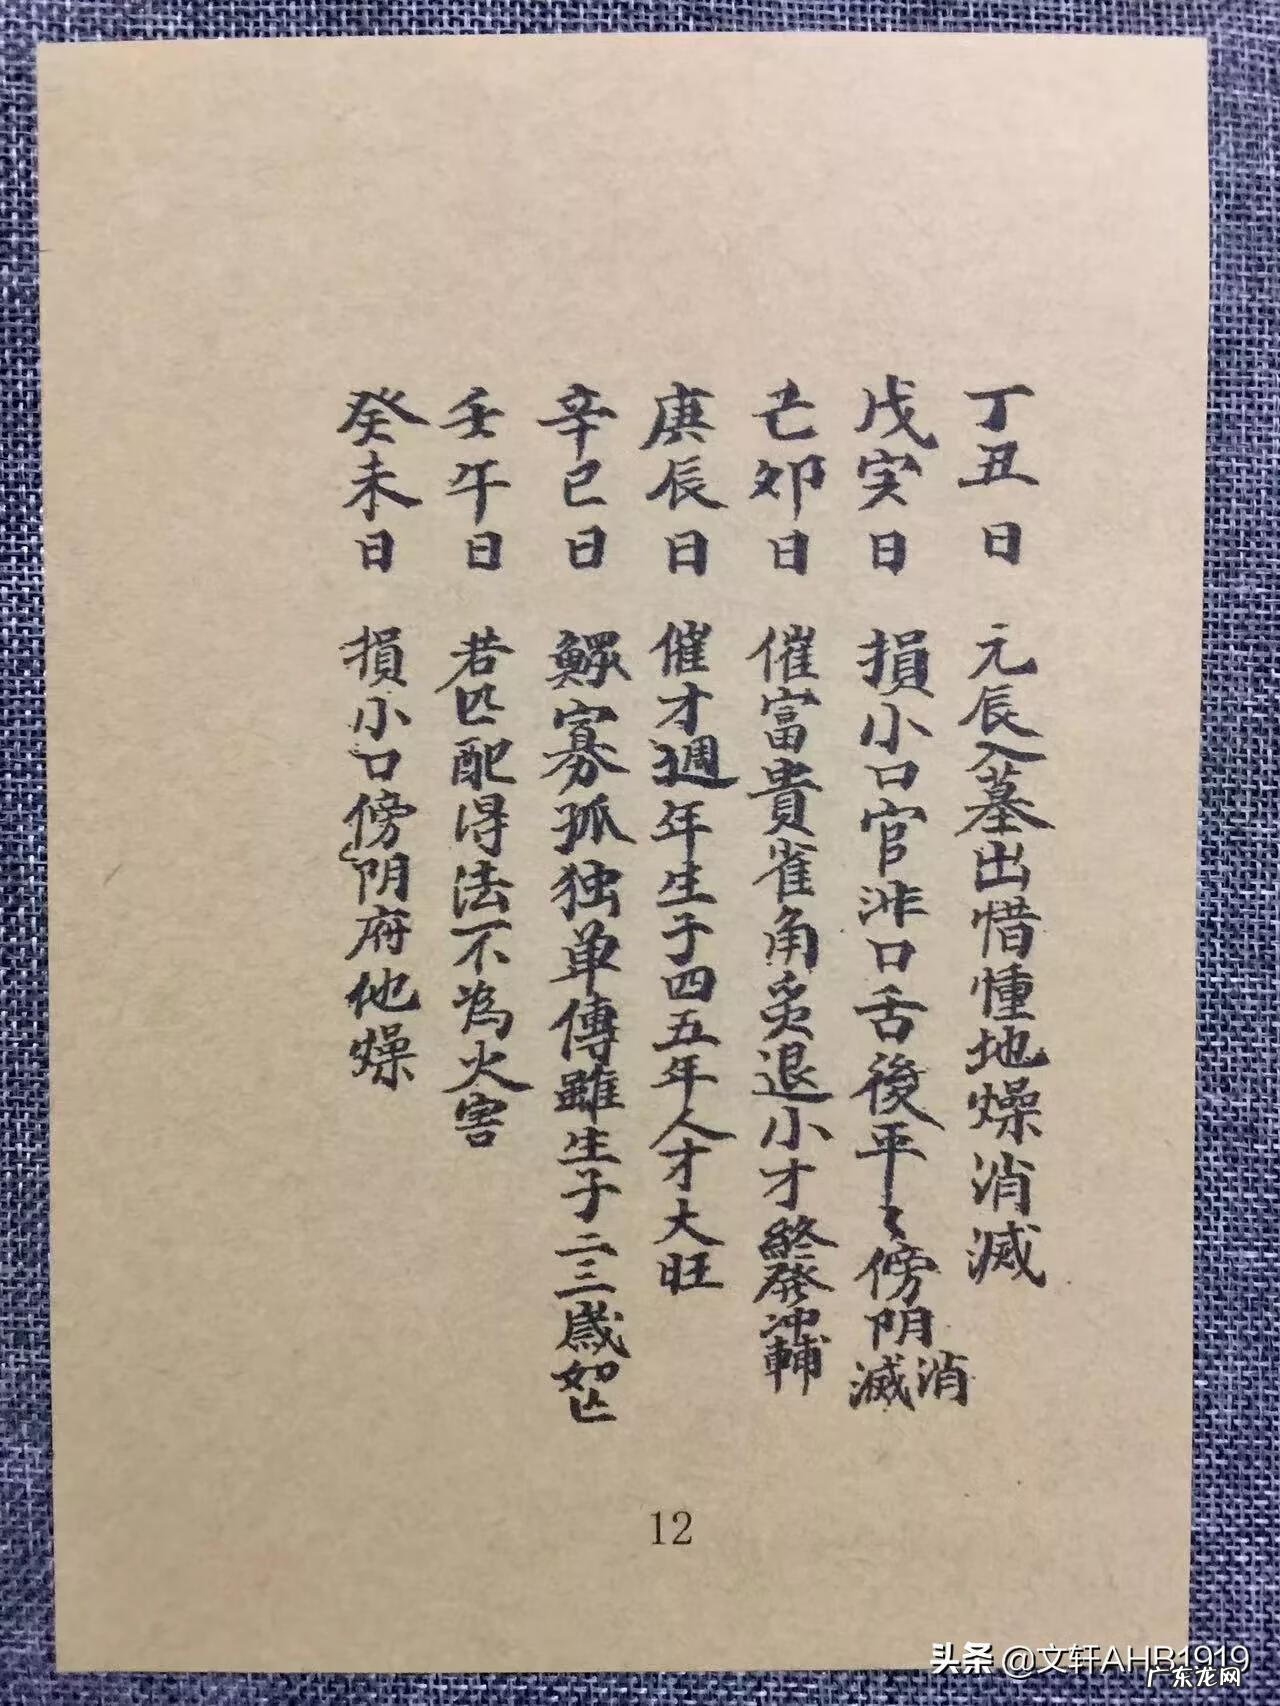 丁丑日 元辰入墓出惜憧地燥消滅
戊寅日 損小口官非口舌後平々傍阴消滅
己卯日 催富貴雀角炙退小才終發冲輔
庚辰日 催才週年生子四五年人才大旺
辛巳日 鰥寡孤独单傳雖生子二三歲如亡
壬午日 若匹配得法不為火害
癸未日 損小口傍阴府他燥
12
头条 @文轩AHB1919
广东龙网